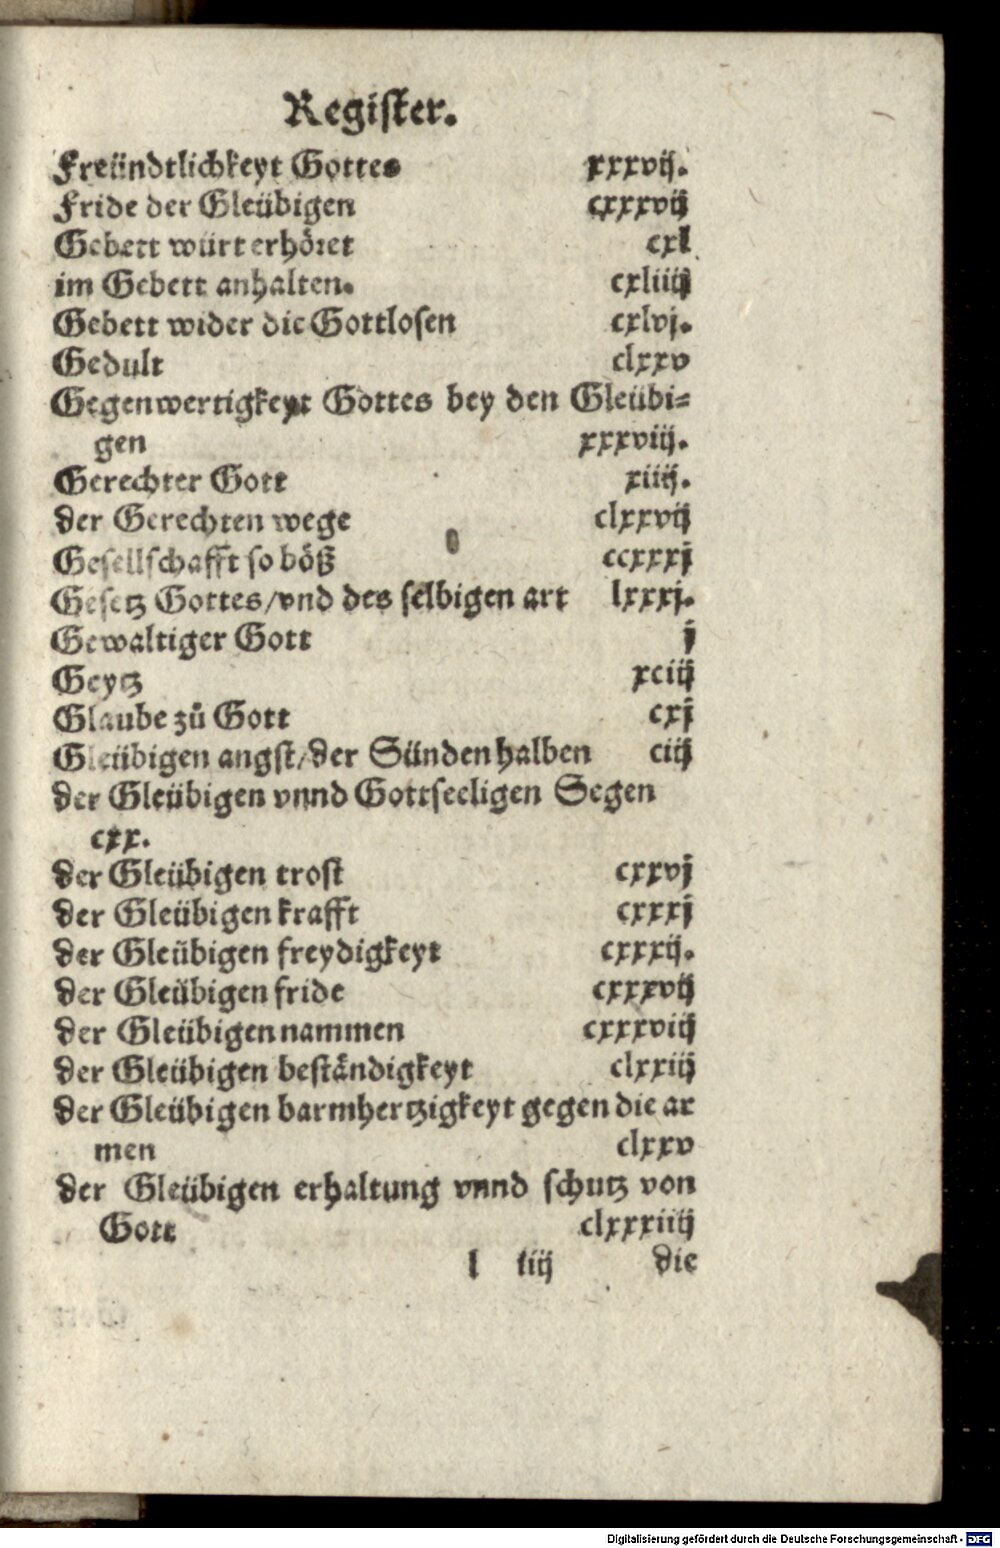 Register.
Freündtlichkeyt Gottes xxxvij.
Fride der Gleübigen cxxxvij
Gebett würt erhöret cxl
im Gebett anhalten. cxliiij
Gebett wider die Gottlosen cxlvj.
Gedult clxxv
Gegenwertigkeyt Gottes bey den Gleübi-
gen xxxviij.
Gerechter Gott xiiij.
der Gerechten wege clxxvij
Gesellschafft so böß ccxxxj
Gesetz Gottes/vnd des selbigen art lxxxj.
Gewaltiger Gott j
Geytz xciij
Glaube zů Gott cxj
Gleübigen angst/der Sünden halben ciij
der Gleübigen vnnd Gottseeligen Segen
cxx.
der Gleübigen trost cxxvj
der Gleübigen krafft cxxxj
der Gleübigen freydigkeyt cxxxij.
der Gleübigen fride cxxxvij
der Gleübigen nammen cxxxviij
der Gleübigen beständigkeyt clxxiij
der Gleübigen barmhertzigkeyt gegen die ar
men clxxv
der Gleübigen erhaltung vnnd schutz von
Gott clxxxiiij
l iij die
Digitalisierung gefördert durch die Deutsche Forschungsgemeinschaft - DFG